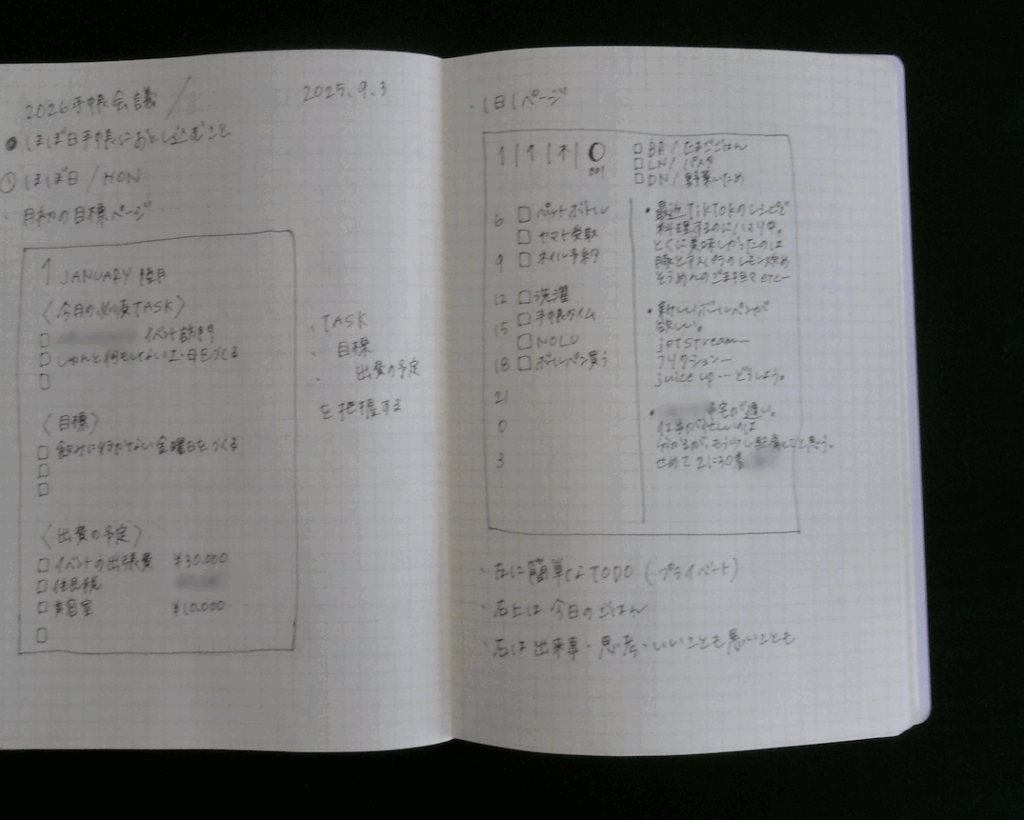 2026手帳会議
2025.9.3
● ほぼ日手帳におとし込むこと
① ほぼ日/HON
・月初の目標ページ
1 JANUARY 睦月
〈今月の必須TASK〉
□ イベント訪問
□ しゃんと何もしない土・日をつくる
□
〈目標〉
□ 飲みに行かない金曜日をつくる
□
□
〈出費の予定〉
□ イベントの出張費 ¥30,000
□ 住民税
□ 美容室 ¥10,000
□
・TASK
・目標
・出費の予定
を把握する
・1日1ページ
1|1|木|
001
□ BR/たまごごはん
□ LN/パスタ
□ DN/野菜いため
6 □ ペットボトル
□ ヤマト受取
9 □ ネイル予約
12 □ 洗濯
15 □ 手帳タイム
□ NOLU
18 □ ボールペン買う
21
0
3
・最近TikTokのレシピで
料理するのにハマり中。
とくに美味しかったのは
豚とアスパラのレモン炒め
そうめんのごま担々 etc…
・新しいボールペンが
欲しい。
jetstream…
フリクション…
juice up … どうしよう。
・帰宅が遅い。
仕事が忙しいのは
分かるが、もう少し配慮してと思う。
せめて21:30
・左に簡単なTODO（プライベート）
・右上は今日のごはん
・右は出来事・思考・いいことも悪いことも